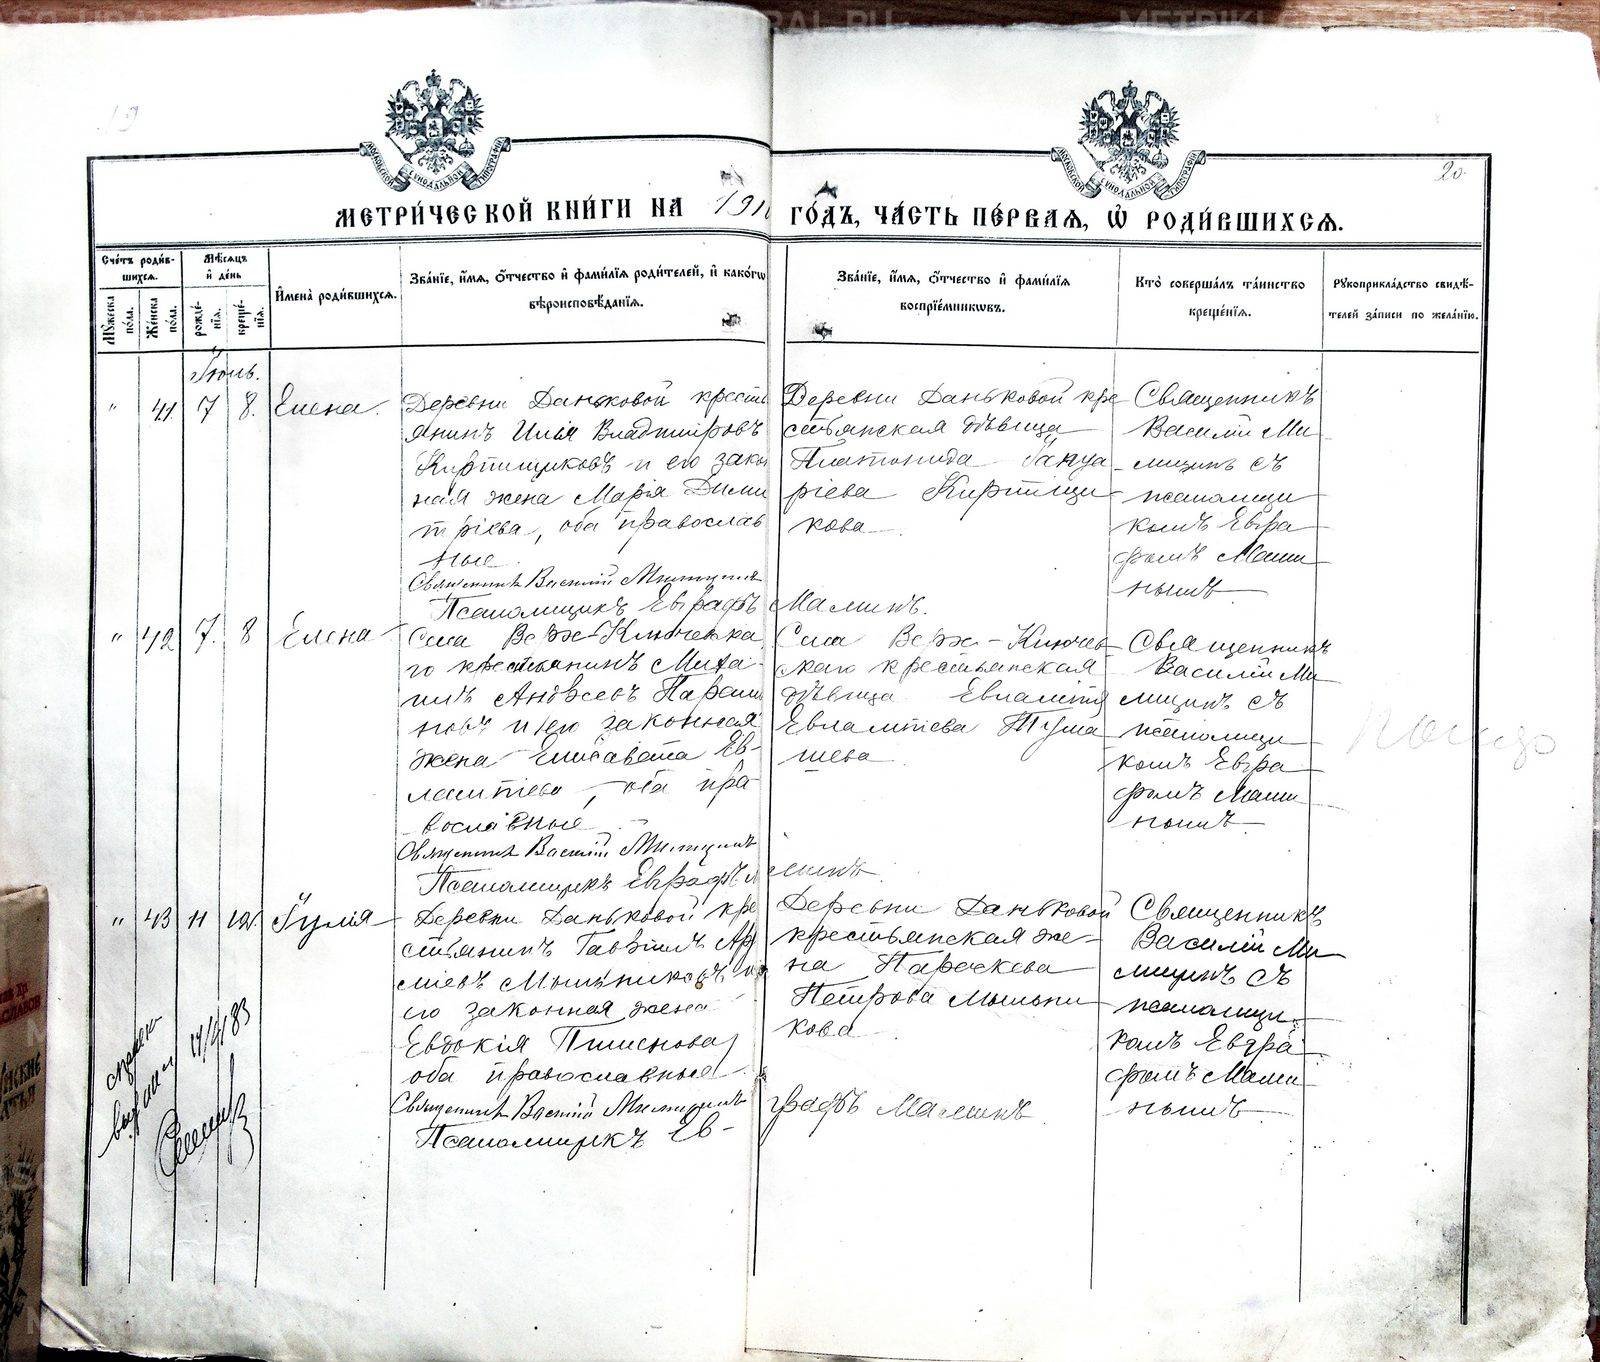 20.
МЕТРИ́ЧЕСКОЙ КНИ́ГИ НА 1910 ГО́ДЪ, ЧА́СТЬ ПЕ́РВАЯ, Ѽ РОДИ́ВШИХСЯ.
Сче́тъ роди́в-
шихся.
Мꙋ́жеска по́ла.
Же́нска по́ла.
Мѣ́сяцъ
и҆ де́нь
рожде́-
нїя.
креще́-
нїя.
И҆мена̀ роди́вшихся.
Зва́нїе, и҆́мя, ѻ҆́тчество и҆ фами́лїя роди́телей, и҆ како́гѡ
вѣроисповѣ́данїя.
Зва́нїе, и҆́мя, ѻ҆́тчество и҆ фами́лїя
воспрїе́мникѡвъ.
Кто̀ соверша́лъ та́инство
креще́нїя.
Рꙋкоприкла́дство свидѣ́-
телей за́писи по жела́нїю.
Іюль.
" 41. 7 8. Елена.
Деревни Даньковой кресть
янинъ Илія Владиміровъ
Кирпищиковъ и его закон
ная жена Марія Дими
тріева, оба православ
ные.
Священникъ Василій Милицинъ
Псаломщикъ Евграфъ Маминъ.
Деревни Даньковой кре
стьянская дѣвица
Платонида Іануа
ріева Кирпищи
кова
Священникъ
Василій Ми
лицинъ съ
псаломщи
комъ Евгра
фомъ Мами
нымъ
" 42 7. 8 Елена
Села Верх-Ключевска
го крестьянинъ Миха
илъ Андреевъ
и его законная
жена Елисавета Ев-
лампіева, оба пра
вославные
Священникъ Василій Милицинъ
Псаломщикъ Евграфъ Маминъ.
Села Верх-Ключев
скаго крестьянская
дѣвица Евлампія
Евлампіева
Священникъ
Василій Ми
лицинъ съ
псаломщи
комъ Евгра
фомъ Мами
нымъ
" 43 11 12. Іулія
Деревни Даньковой кре
стьянинъ Гавріилъ
Мыльниковъ и
его законная жена
Евдокія
оба православные
Священникъ Василій Милицинъ
Псаломщикъ Ев-
графъ Маминъ
Деревни Даньковой
крестьянская же-
на Параскева
Петрова Мыльни
кова
Священникъ
Василій Ми
лицинъ съ
псаломщи
комъ Евгра
фомъ Мами
нымъ